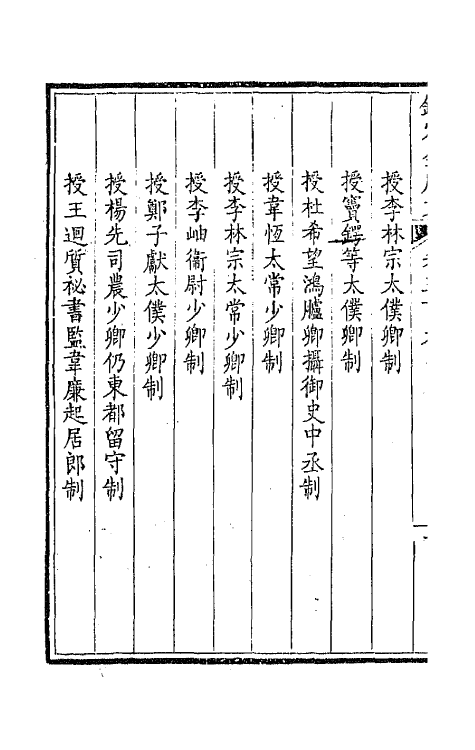 授李林宗太僕卿制
授竇鍔等太僕卿制
授杜希望鴻臚卿攝御史中丞制
授韋恆太常少卿制
授李林宗太常少卿制
授李岫衞尉少卿制
授鄭子獻太僕少卿制
授楊先司農少卿仍東都留守制
授王迥質祕書監韋廉起居郎制